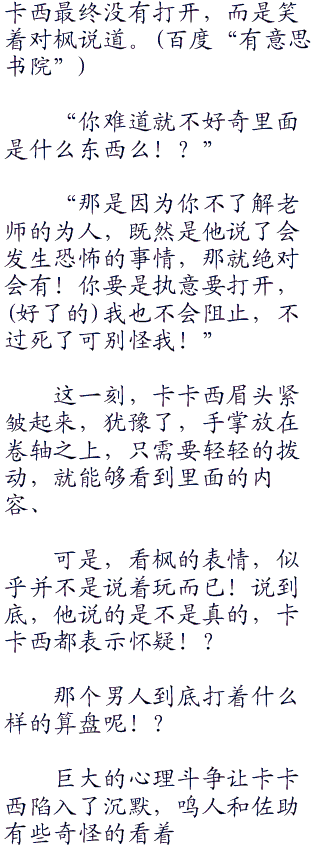 卡西最终没有打开，而是笑
着对枫说道。(百度“有意思
书院”)
“你难道就不好奇里面
是什么东西么！？”
“那是因为你不了解老
师的为人，既然是他说了会
发生恐怖的事情，那就绝对
会有！你要是执意要打开，
(好了的)我也不会阻止，不
过死了可别怪我！”
这一刻，卡卡西眉头紧
皱起来，犹豫了，手掌放在
卷轴之上，只需要轻轻的拨
动，就能够看到里面的内
容、
可是，看枫的表情，似
乎并不是说着玩而已！说到
底，他说的是不是真的，卡
卡西都表示怀疑！？
那个男人到底打着什么
样的算盘呢！？
巨大的心理斗争让卡卡
西陷入了沉默，鸣人和佐助
有些奇怪的看着